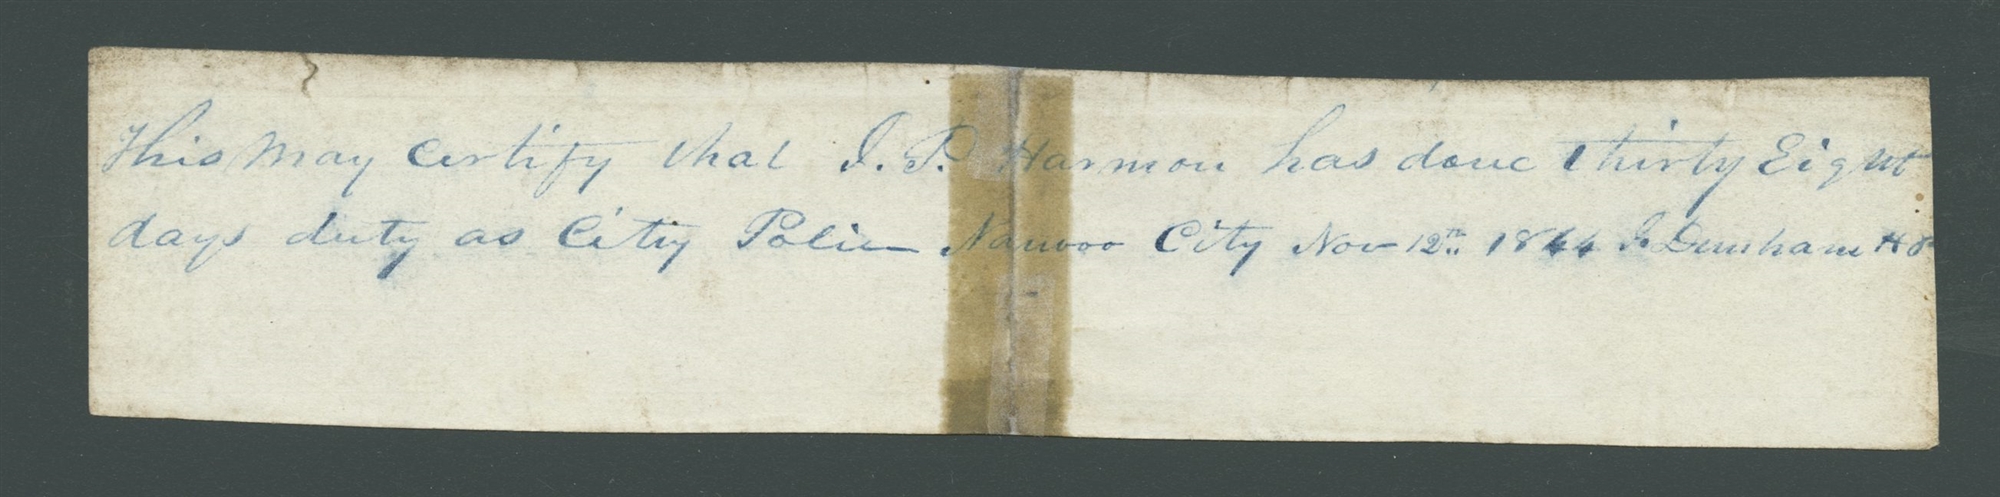 This May certify that J. P. Harmon has done thirty Eight
days duty as City Police Nauvoo City Nov 12th 1844 J. Dunham